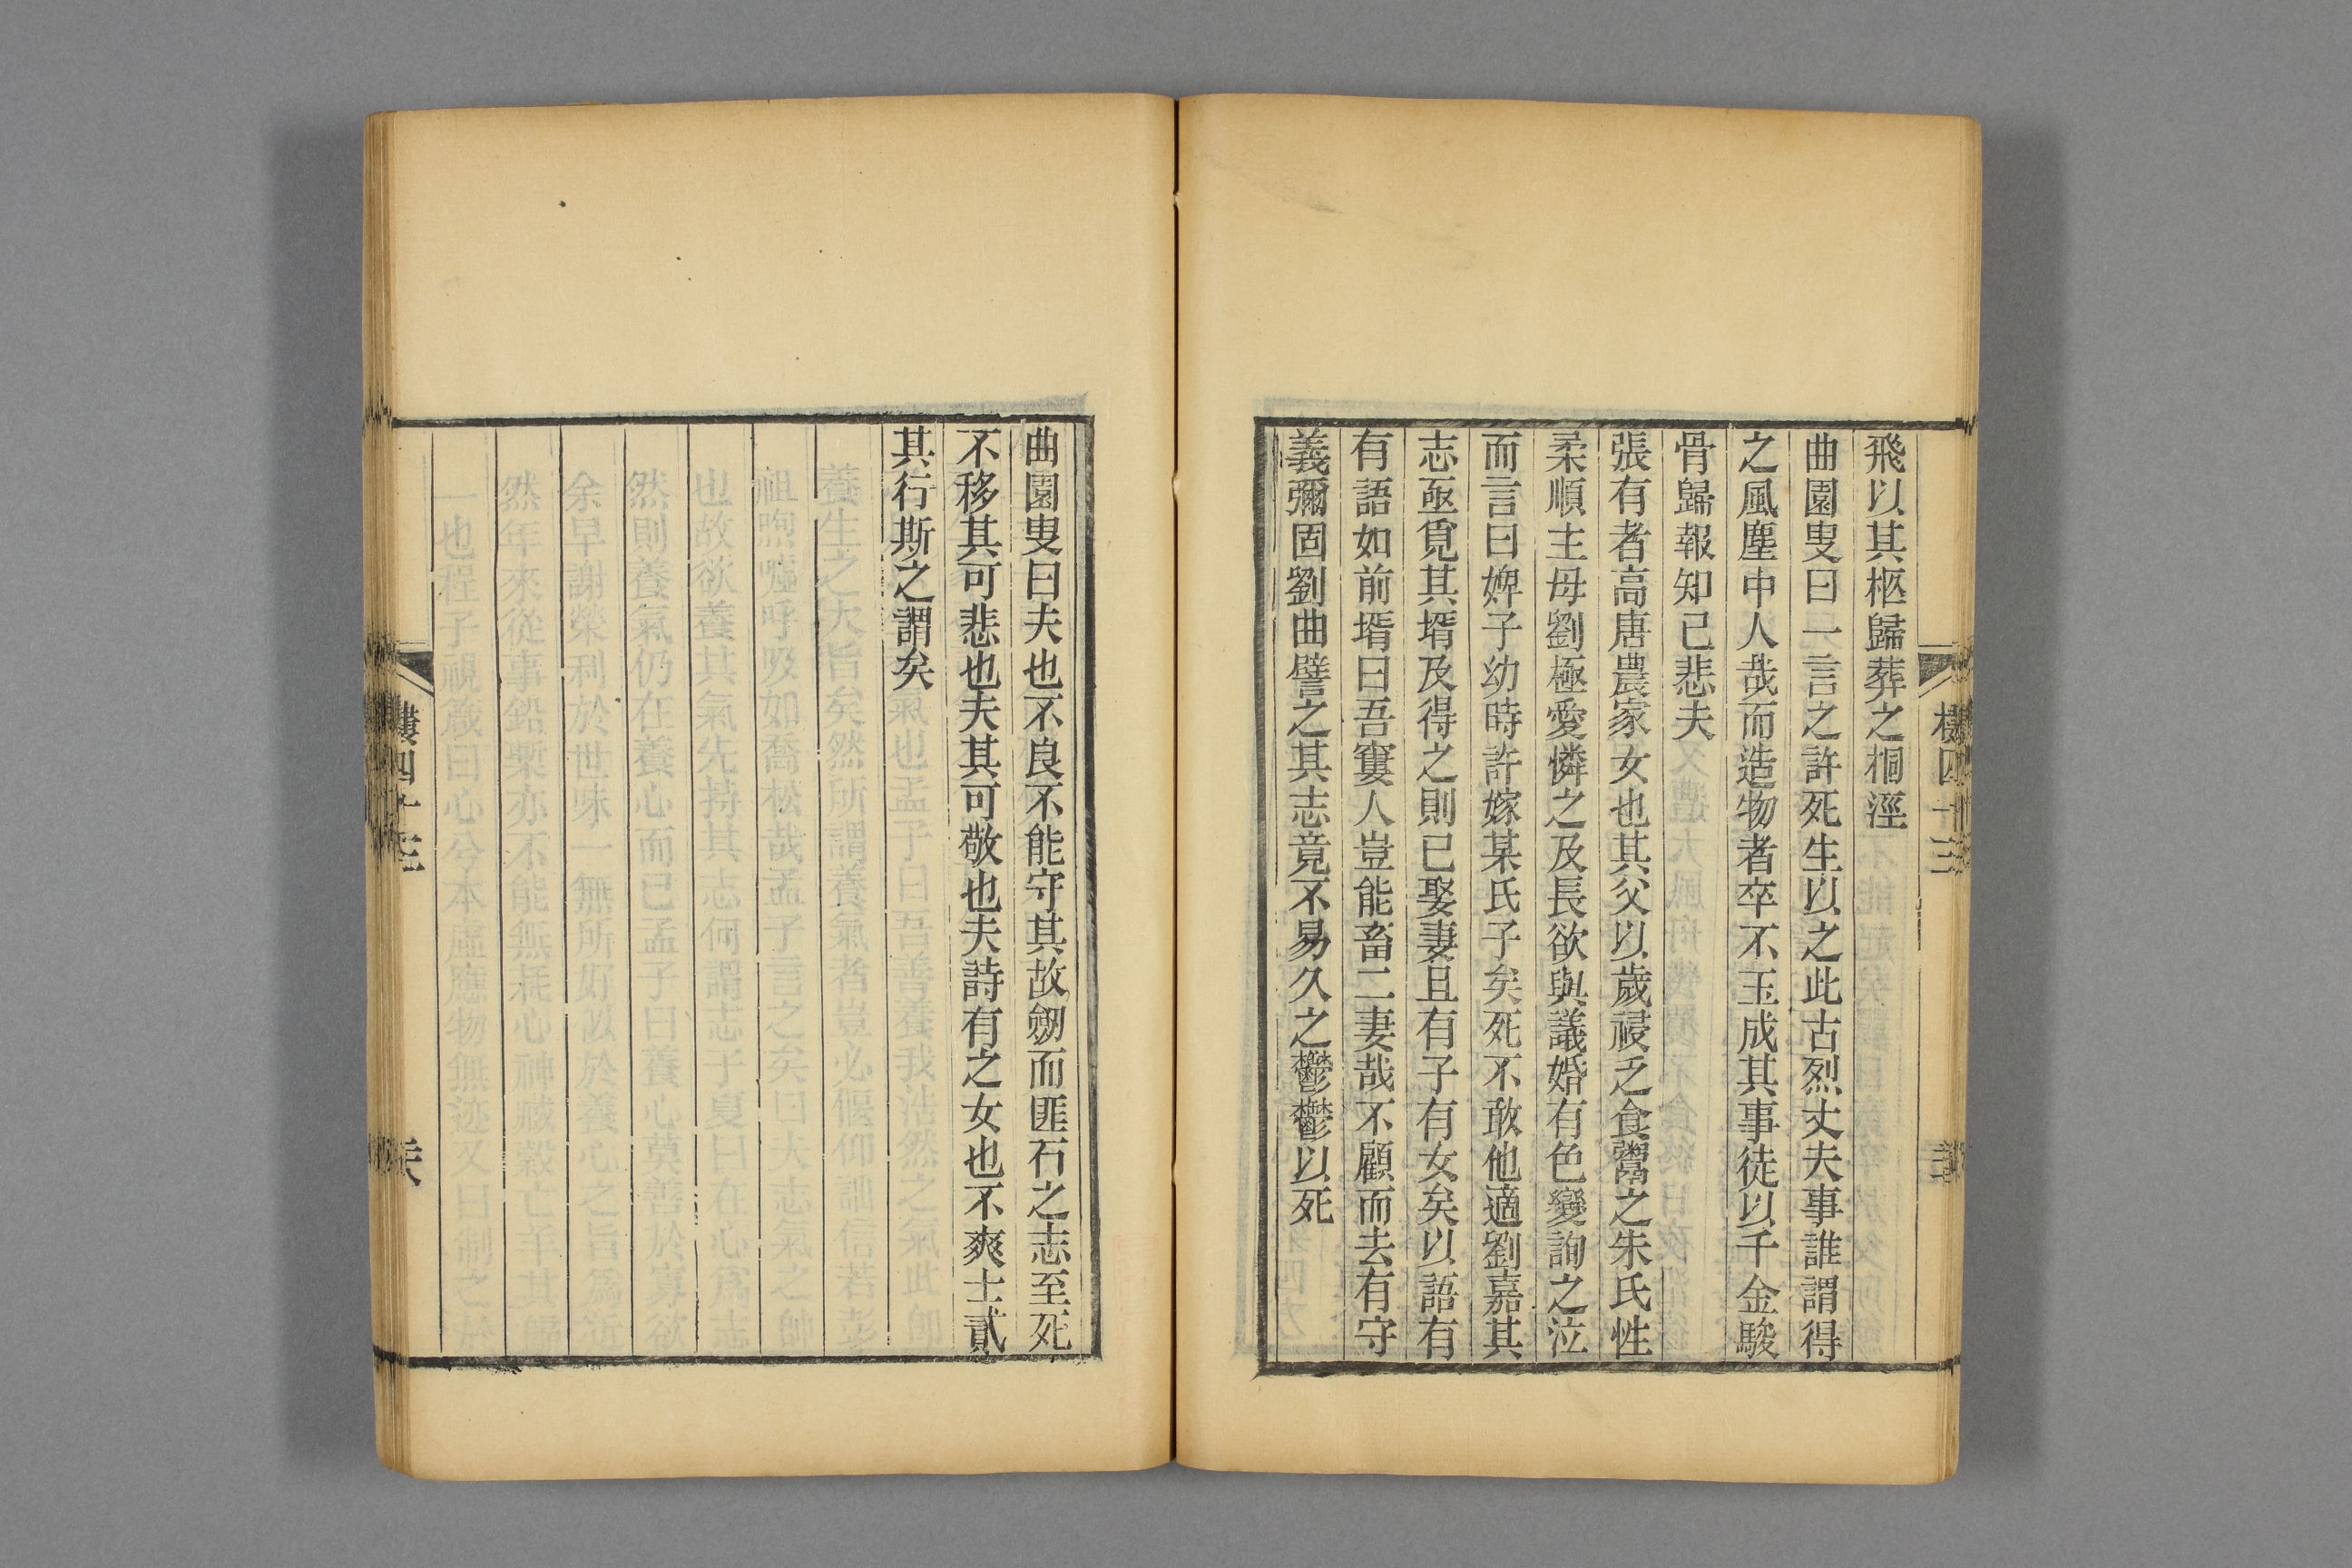 飛以其柩歸葬之桐涇
曲園叟曰一言之許死生以之此古烈丈夫事誰謂得
之風塵中人哉而造物者卒不玉成其事徒以千金駿
骨歸報知己悲夫
張有者高唐農家女也其父以歲祲乏食鬻之朱氏性
柔順主母劉極愛憐之及長欲與議婚有色變詢之泣
而言曰婢子幼時許嫁某氏子矣死不敢他適劉嘉其
志亟覓其壻及得之則已娶妻且有子有女矣以語有
有語如前壻曰吾窶人豈能畜二妻哉不顧而去有守
義彌固劉曲譬之其志竟不易久之鬱鬱以死
樓四十三
曲園叟曰夫也不良不能守其故劒而匪石之志至死
不移其可悲也夫其可敬也夫詩有之女也不爽士貳
其行斯之謂矣
樓四十三